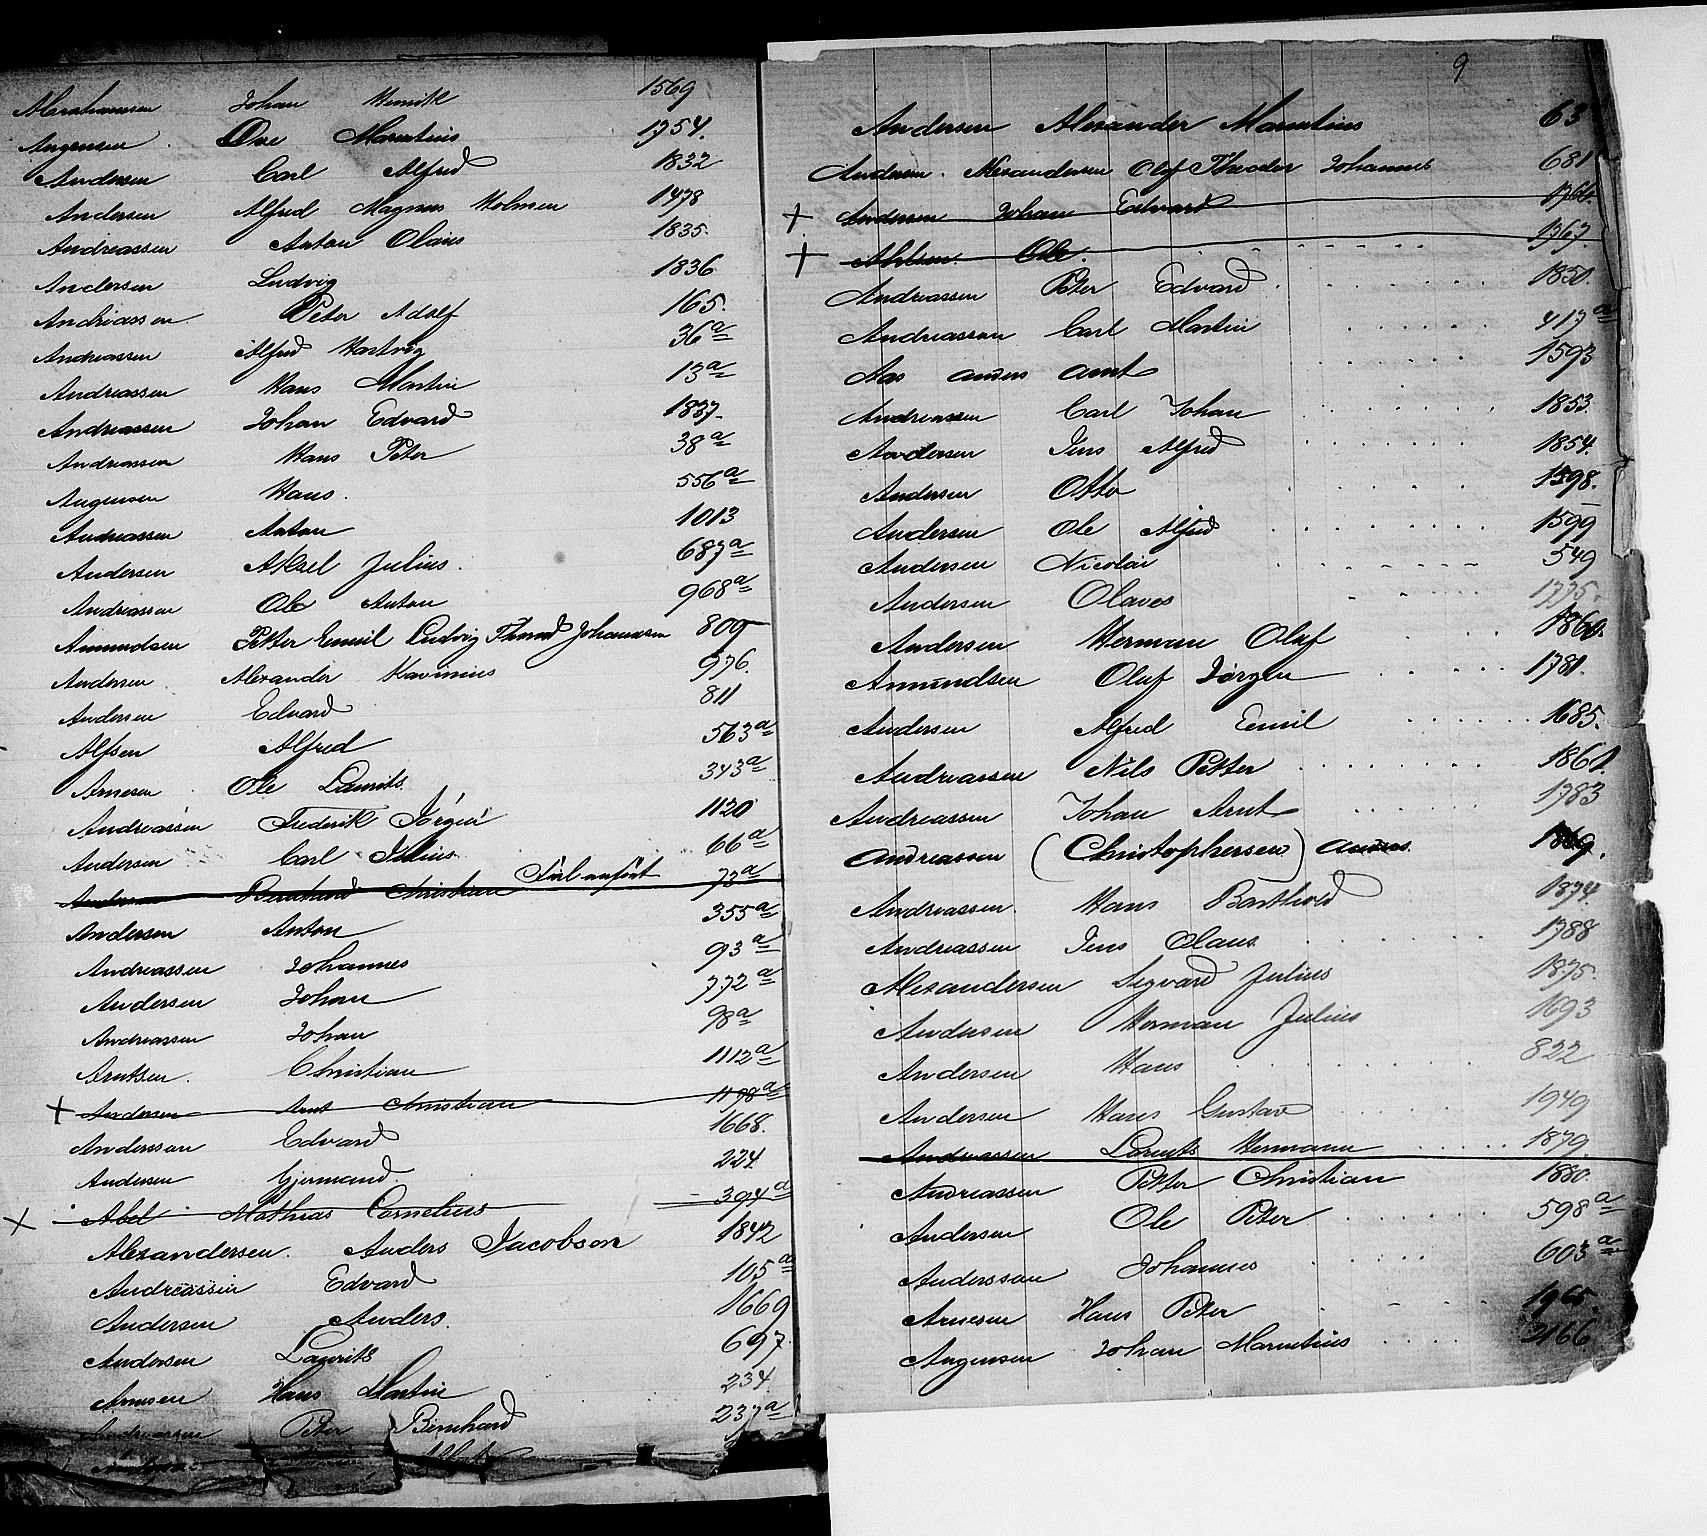 Abrahamsen Johan Henrik 1569
Augensen Ove Mauritius 1754.
Andersen Carl Alfred 1832
Andersen Alfred Magnus Holmen 1478
Andreassen Anton Olaus 1835.
Andersen Ludvig 1836
Andreassen Peter Adolf 165.
Andreassen Alfred Hartvig 36a
Andreassen Hans Martin 13a
Andreassen Johan Edvard 1837.
Andreassen Hans Peter 38a
Augensen Hans. 556a
Andreassen Anton 1013
Andersen Aksel Julius. 687a
Andreassen Ole Anton 968a
Amundsen Petter Emil Ludvig Johannesen 809
Andersen Alexander 976.
Andersen Edvard 811
Alfsen Alfred 563a
Arnesen Ole Laurits. 343a
Andreassen Frederik Jørgen 1120
Andersen Carl Julius 66a
Andersen Bernhard Christian 73a
Andersen Anton 355a
Andreassen Johannes 93a
Andersen Johan 772a
Andreassen Johan 98a
Arntsen. Christian 1112a
+ Andersen Arnt Christian 1198a
Anderssen Edvard 1668.
Andersen Gjermand 224
× Abel Mathias Cornelius 394a
Alexandersen. Anders Jacobson 1842
Andreassen Edvard 105a
Andersen Anders. 1669
Andersen Laurits 697.
Arnesen Hans Martin 234.
Andreassen Peter Bernhard 237a
9
Andersen Alexander Mauritius 63
Andersen. Alexandersen Olaf Theodor Johannes 681
+ Andersen Johan Edvard 1766.
+ Ahlsen. Ole. 1767.
Andreassen Peter Edvard 1850.
Andreassen Carl Martin 417a
Aas Anders Arnt 1593
Andreassen Carl Johan 1853.
Andersen Jens Alfred 1854.
Andersen Otto 1598.
Andersen Ole Alfred 1599
Andersen Nicolai 549
Andersen Olaves 1775.
Andersen Herman Oluf 1860.
Amundsen Oluf Jørgen 1781.
Andersen Alfred Emil 1685.
Andreassen Nils Petter 1861.
Andreassen Johan Arnt 1783
Andreassen (Christophersen) Andreas 1869.
Andreassen. Hans Barthold 1874.
Andreassen Jens Olaus 1788
Alexandersen Sigvard Julius 1875.
Andersen Herman Julius 1693
Andersen Hans 822
Andersen Hans Gustav 1949
Andreassen Laurits Hermann 1879.
Andreassen Petter Christian 1880.
Andersen Ole Peter 598a
Anderssen Johannes 603a
Arnesen Hans Peter 1965.
Augensen Johan Mauritius 2166